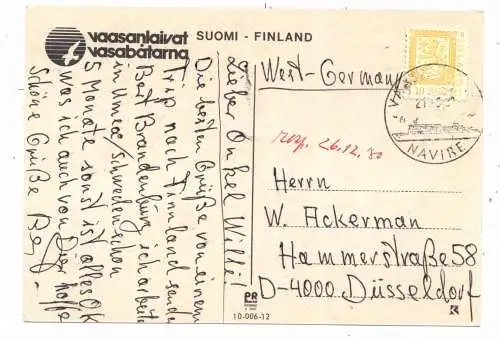 vaasanlaivat
vasabåtarna
SUOMI - FINLAND
Lieber Onkel Willi!
Die besten Grüße von einem
Trip nach Finnland sendet
Bert Brandenburg, ich arbeite
in Umeå/Schweden schon
5 Monate sonst ist alles OK
was ich auch von Dir hoffe
Schöne Grüße
West-Germany
26.12.80
Herrn
W. Ackerman
Hammerstraße 58
D-4000 Düsseldorf
NAVIRE
PR
10-006-12